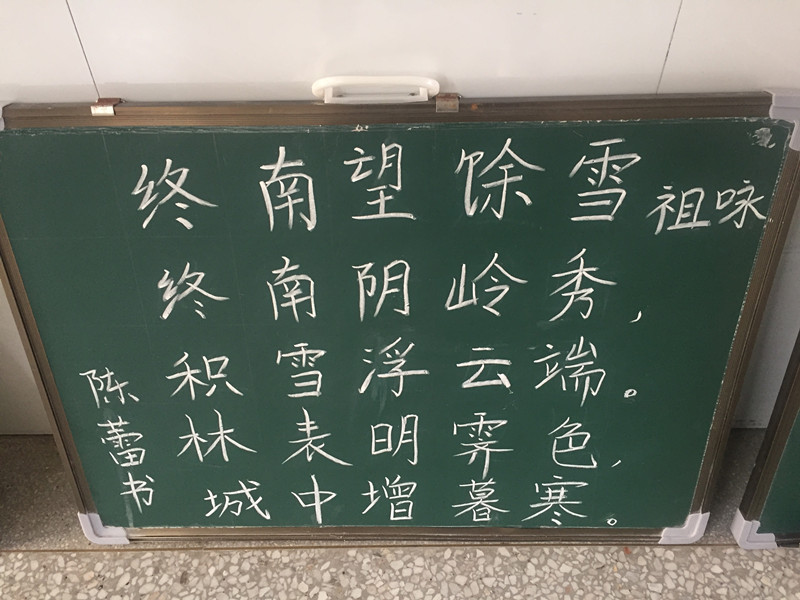 终南望馀雪 祖咏
终南阴岭秀，
积雪浮云端。
林表明霁色，
城中增暮寒。
陈蕾书